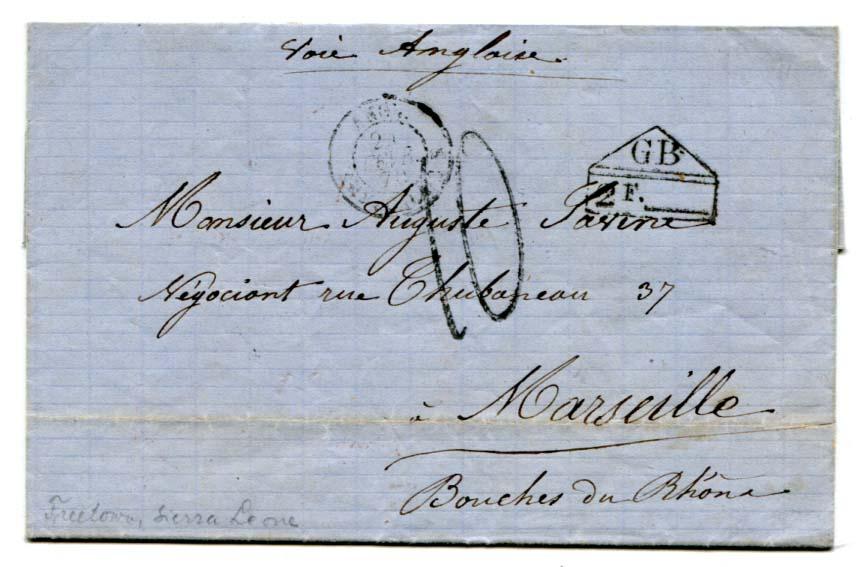 Voie Anglaise.
GB
2 F.
10
Monsieur Auguste Pavine
Négociant rue Thubaneau 37
à Marseille
Bouches du Rhône
Freetown, Sierra Leone